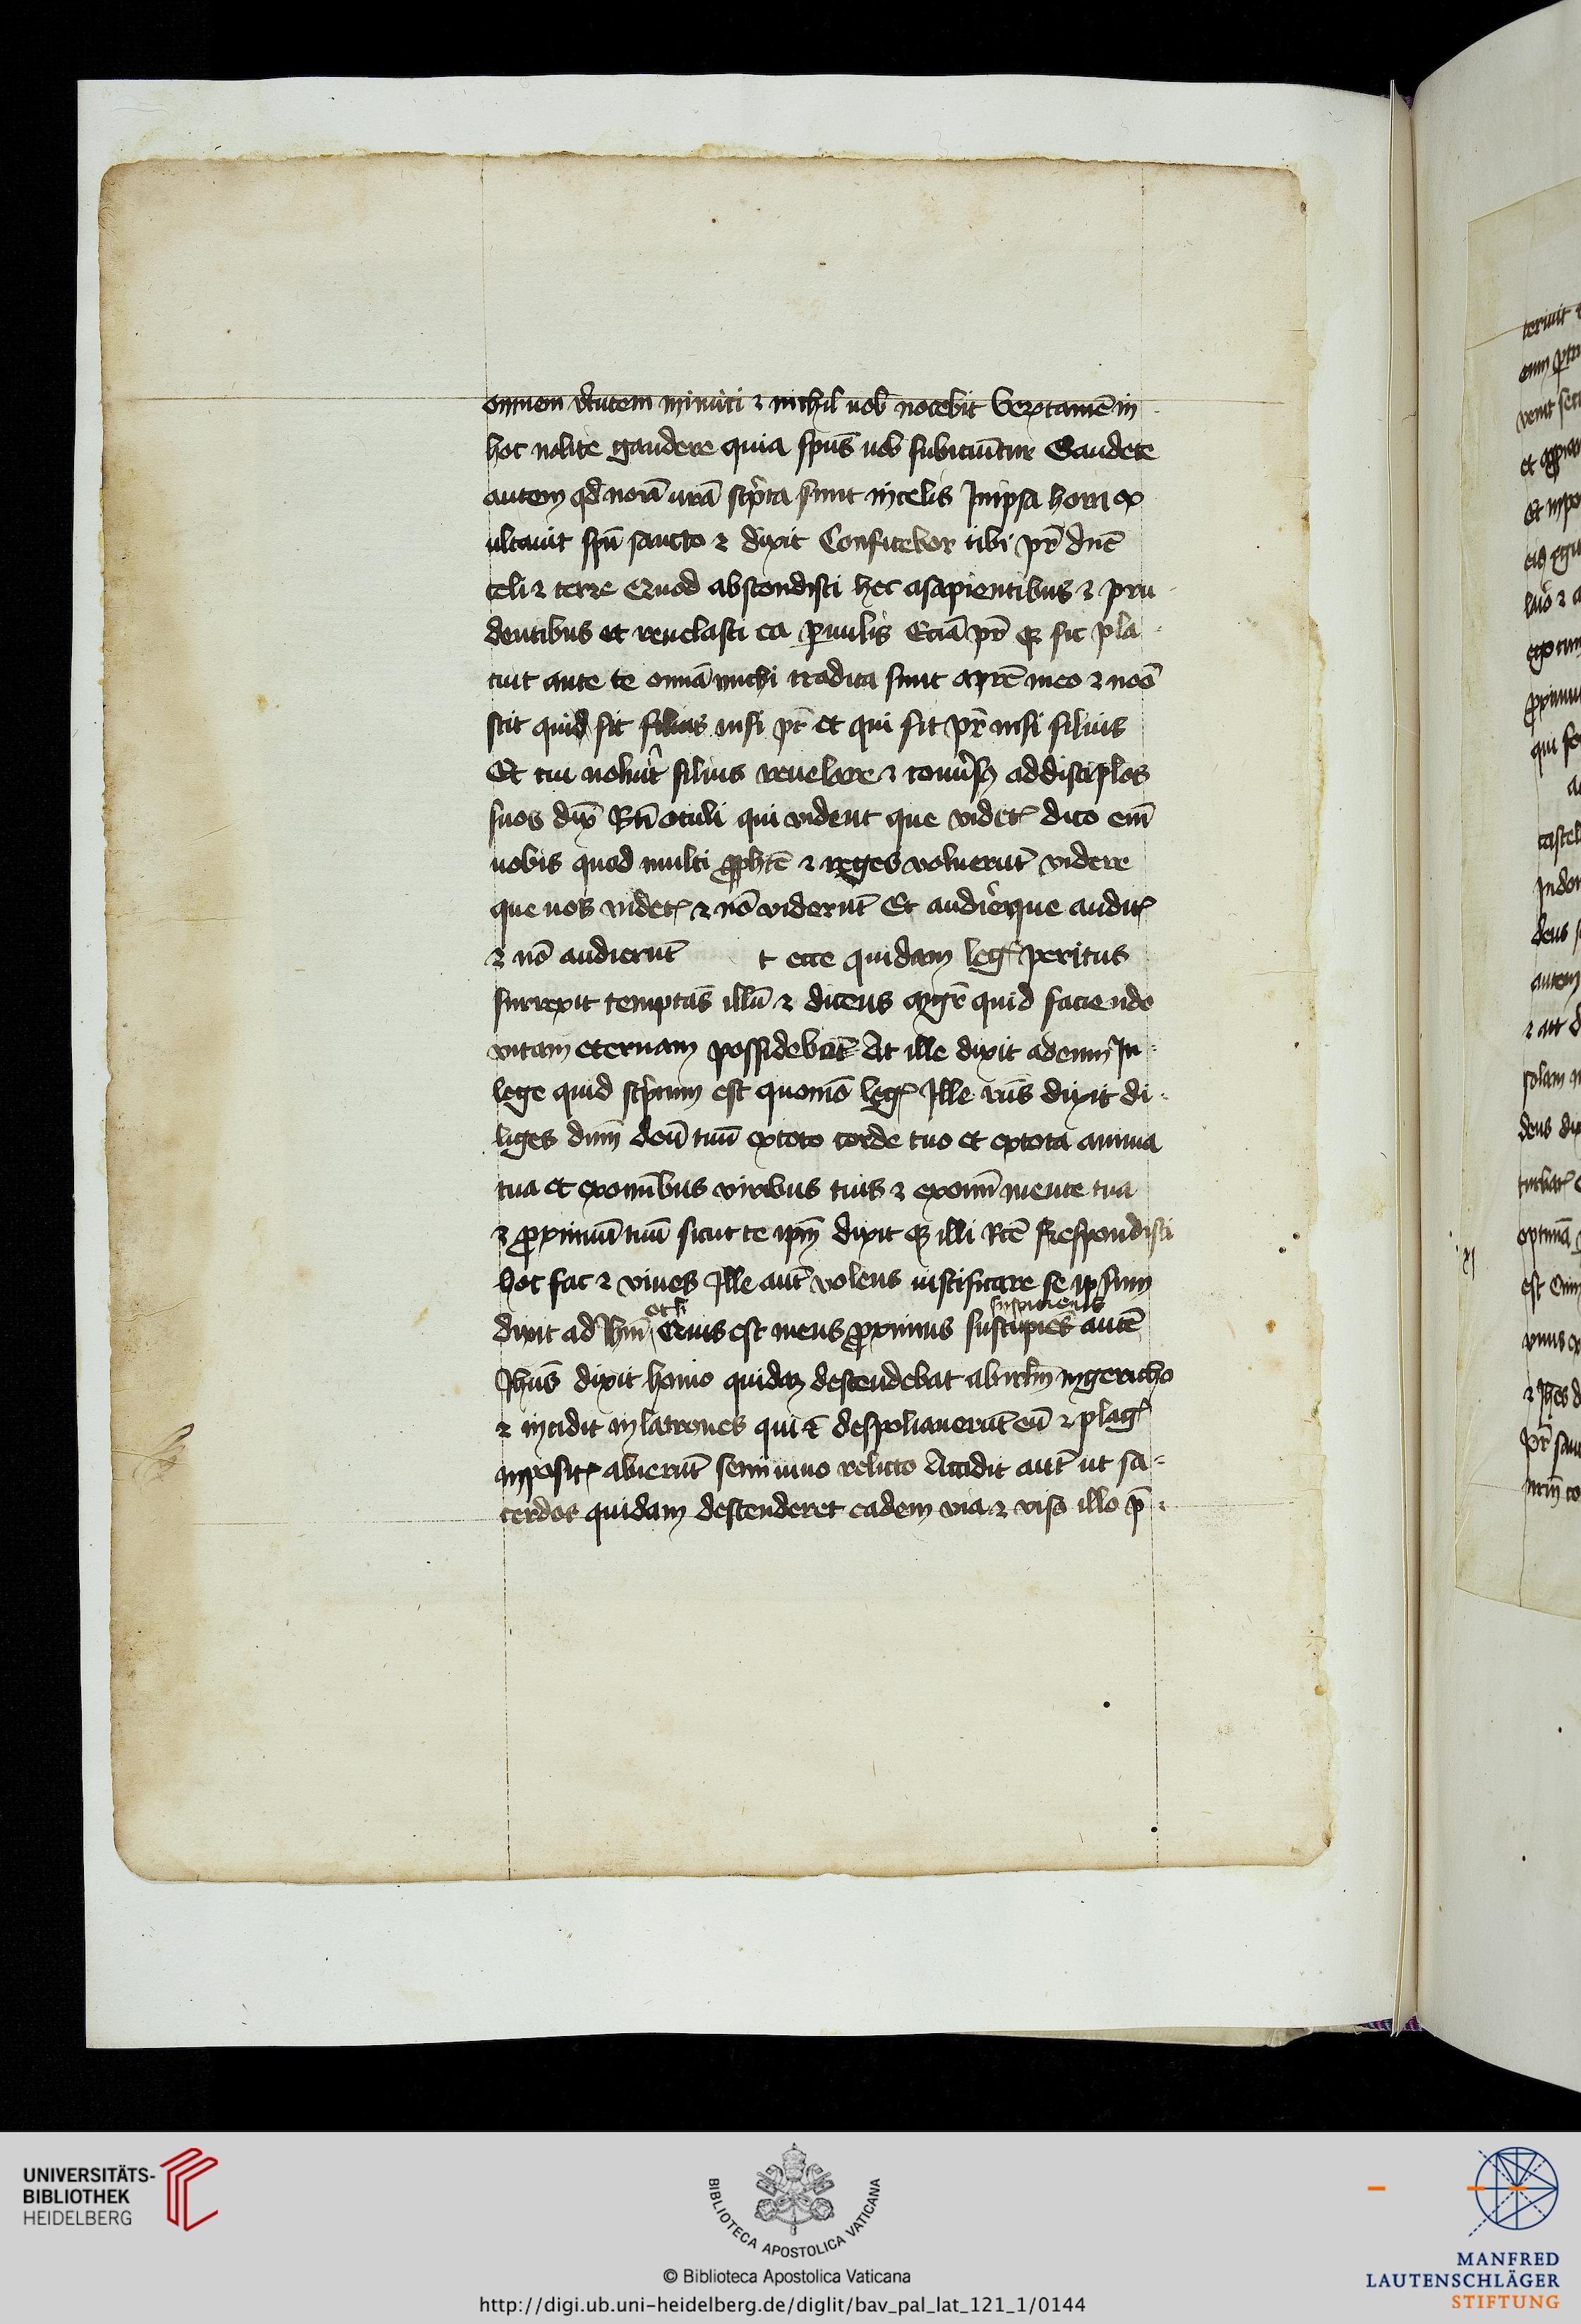 omnem v̾tutem inimici ⁊ nichil uob̄ nocebit Verotamē in
hoc nolite gaudere quia spūs uob̄ subiciūtur Gaudete
autem qd̄ noīa ur̄a scp̄ta sunt in celis In ipsa hora ex
ultauit spū sancto ⁊ dixit Confitebor tibi pr̄ dn̄e
celi ⁊ terre Quod abscondisti hec a sapientibus ⁊ pru
dentibus et reuelasti ea ꝑuulis Eciā pr̄ qꝫ sic pla
cuit ante te omīa michi tradita sunt a pr̄e meo ⁊ neō
scit quid sit filius nisi pr̄ et qui sit pr̄ nisi filius
Et cui uoluit̾ filius reuelare ⁊ conu̾sꝫ ad discip̄los
suos dix̄ Bt̄i oculi qui vident que videtꝭ dico em̄
uobis quod multi ꝓph̄te ⁊ reges voluerut̄ videre
que uos videtꝭ ⁊ nō viderut̄ Et audire que auditꝭ
⁊ nō audierut̄ t ecce quidam legꝭ peritus
surrexit temptās illū ⁊ dicens mgr̄ quid faciendo
vitam eternam possidebit̄ At ille dixit ad eum In
lege quid scp̄tum est quomō legꝭ Ille rn̄s dixit di
liges dnm̄ deū tuū ex toto corde tuo et ex tota anima
tua et ex omībus viribus tuis ⁊ ex omī mente tua
⁊ ꝓximū tuū sicut te ipm̄ dixit qꝫ illi Rc̄te Respondisti
hoc fac ⁊ viues Ille aut̄ volens iustificare se ipsum
et q̄
suspiciens
dixit ad Ihm̄ Quis est meus ꝓximus suscipiēs autē
Ihūs dixit homo quidaꝫ descendebat ab irlm̄ in gericho
⁊ incidit in latrones qui ec̄ despoliauerut̄ eū ⁊ plagꝭ
impositꝭ abierut̄ semi uiuo relicto Accidit aut̄ ut sa
cerdos quidam descenderet eadem via ⁊ viso illo p̄
UNIVERSITÄTS-
BIBLIOTHEK
HEIDELBERG
BIBLIOTECA APOSTOLICA VATICANA
© Biblioteca Apostolica Vaticana
http://digi.ub.uni-heidelberg.de/diglit/bav_pal_lat_121_1/0144
MANFRED
LAUTENSCHLÄGER
STIFTUNG